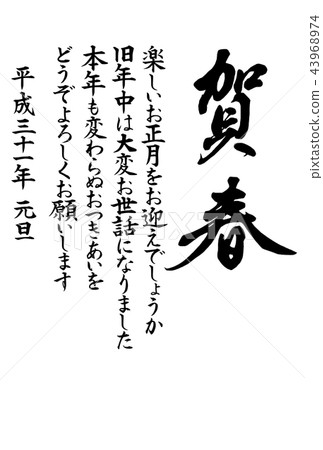 賀春
楽しいお正月をお迎えでしょうか
旧年中は大変お世話になりました
本年も変わらぬおつきあいを
どうぞよろしくお願いします
平成三十一年 元旦
PIXTA
pixta.jp - 43968974